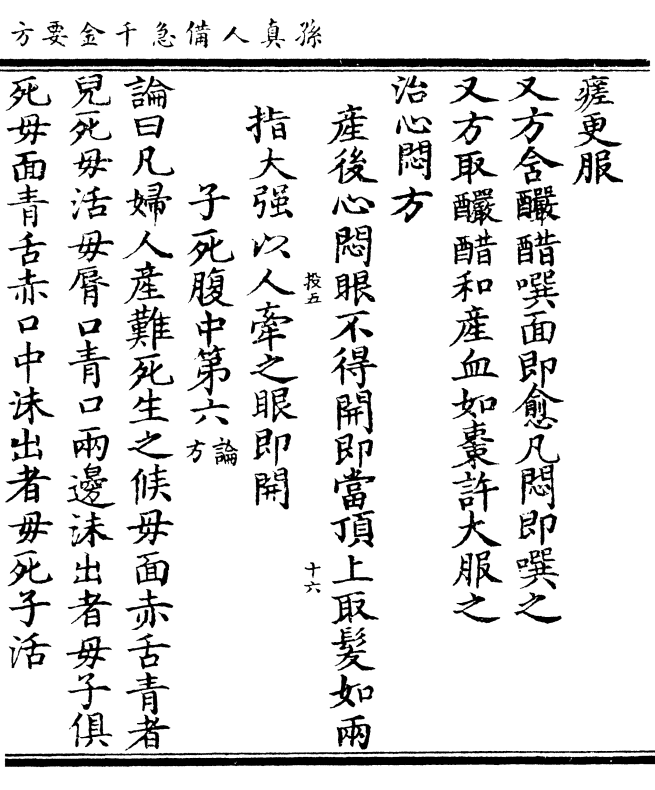 孫真人備急千金要方
瘥更服
又方含釅醋噀面即愈凡悶即噀之
又方取釅醋和產血如棗許大服之
治心悶方
產後心悶眼不得開即當頂上取髮如兩
投五
十六
指大强以人牽之眼即開
子死腹中第六論方
論曰凡婦人產難死生之候毋面赤舌青者
兒死毋活毋脣口青口兩邊沫出者毋子俱
死毋面青舌赤口中沫出者毋死子活